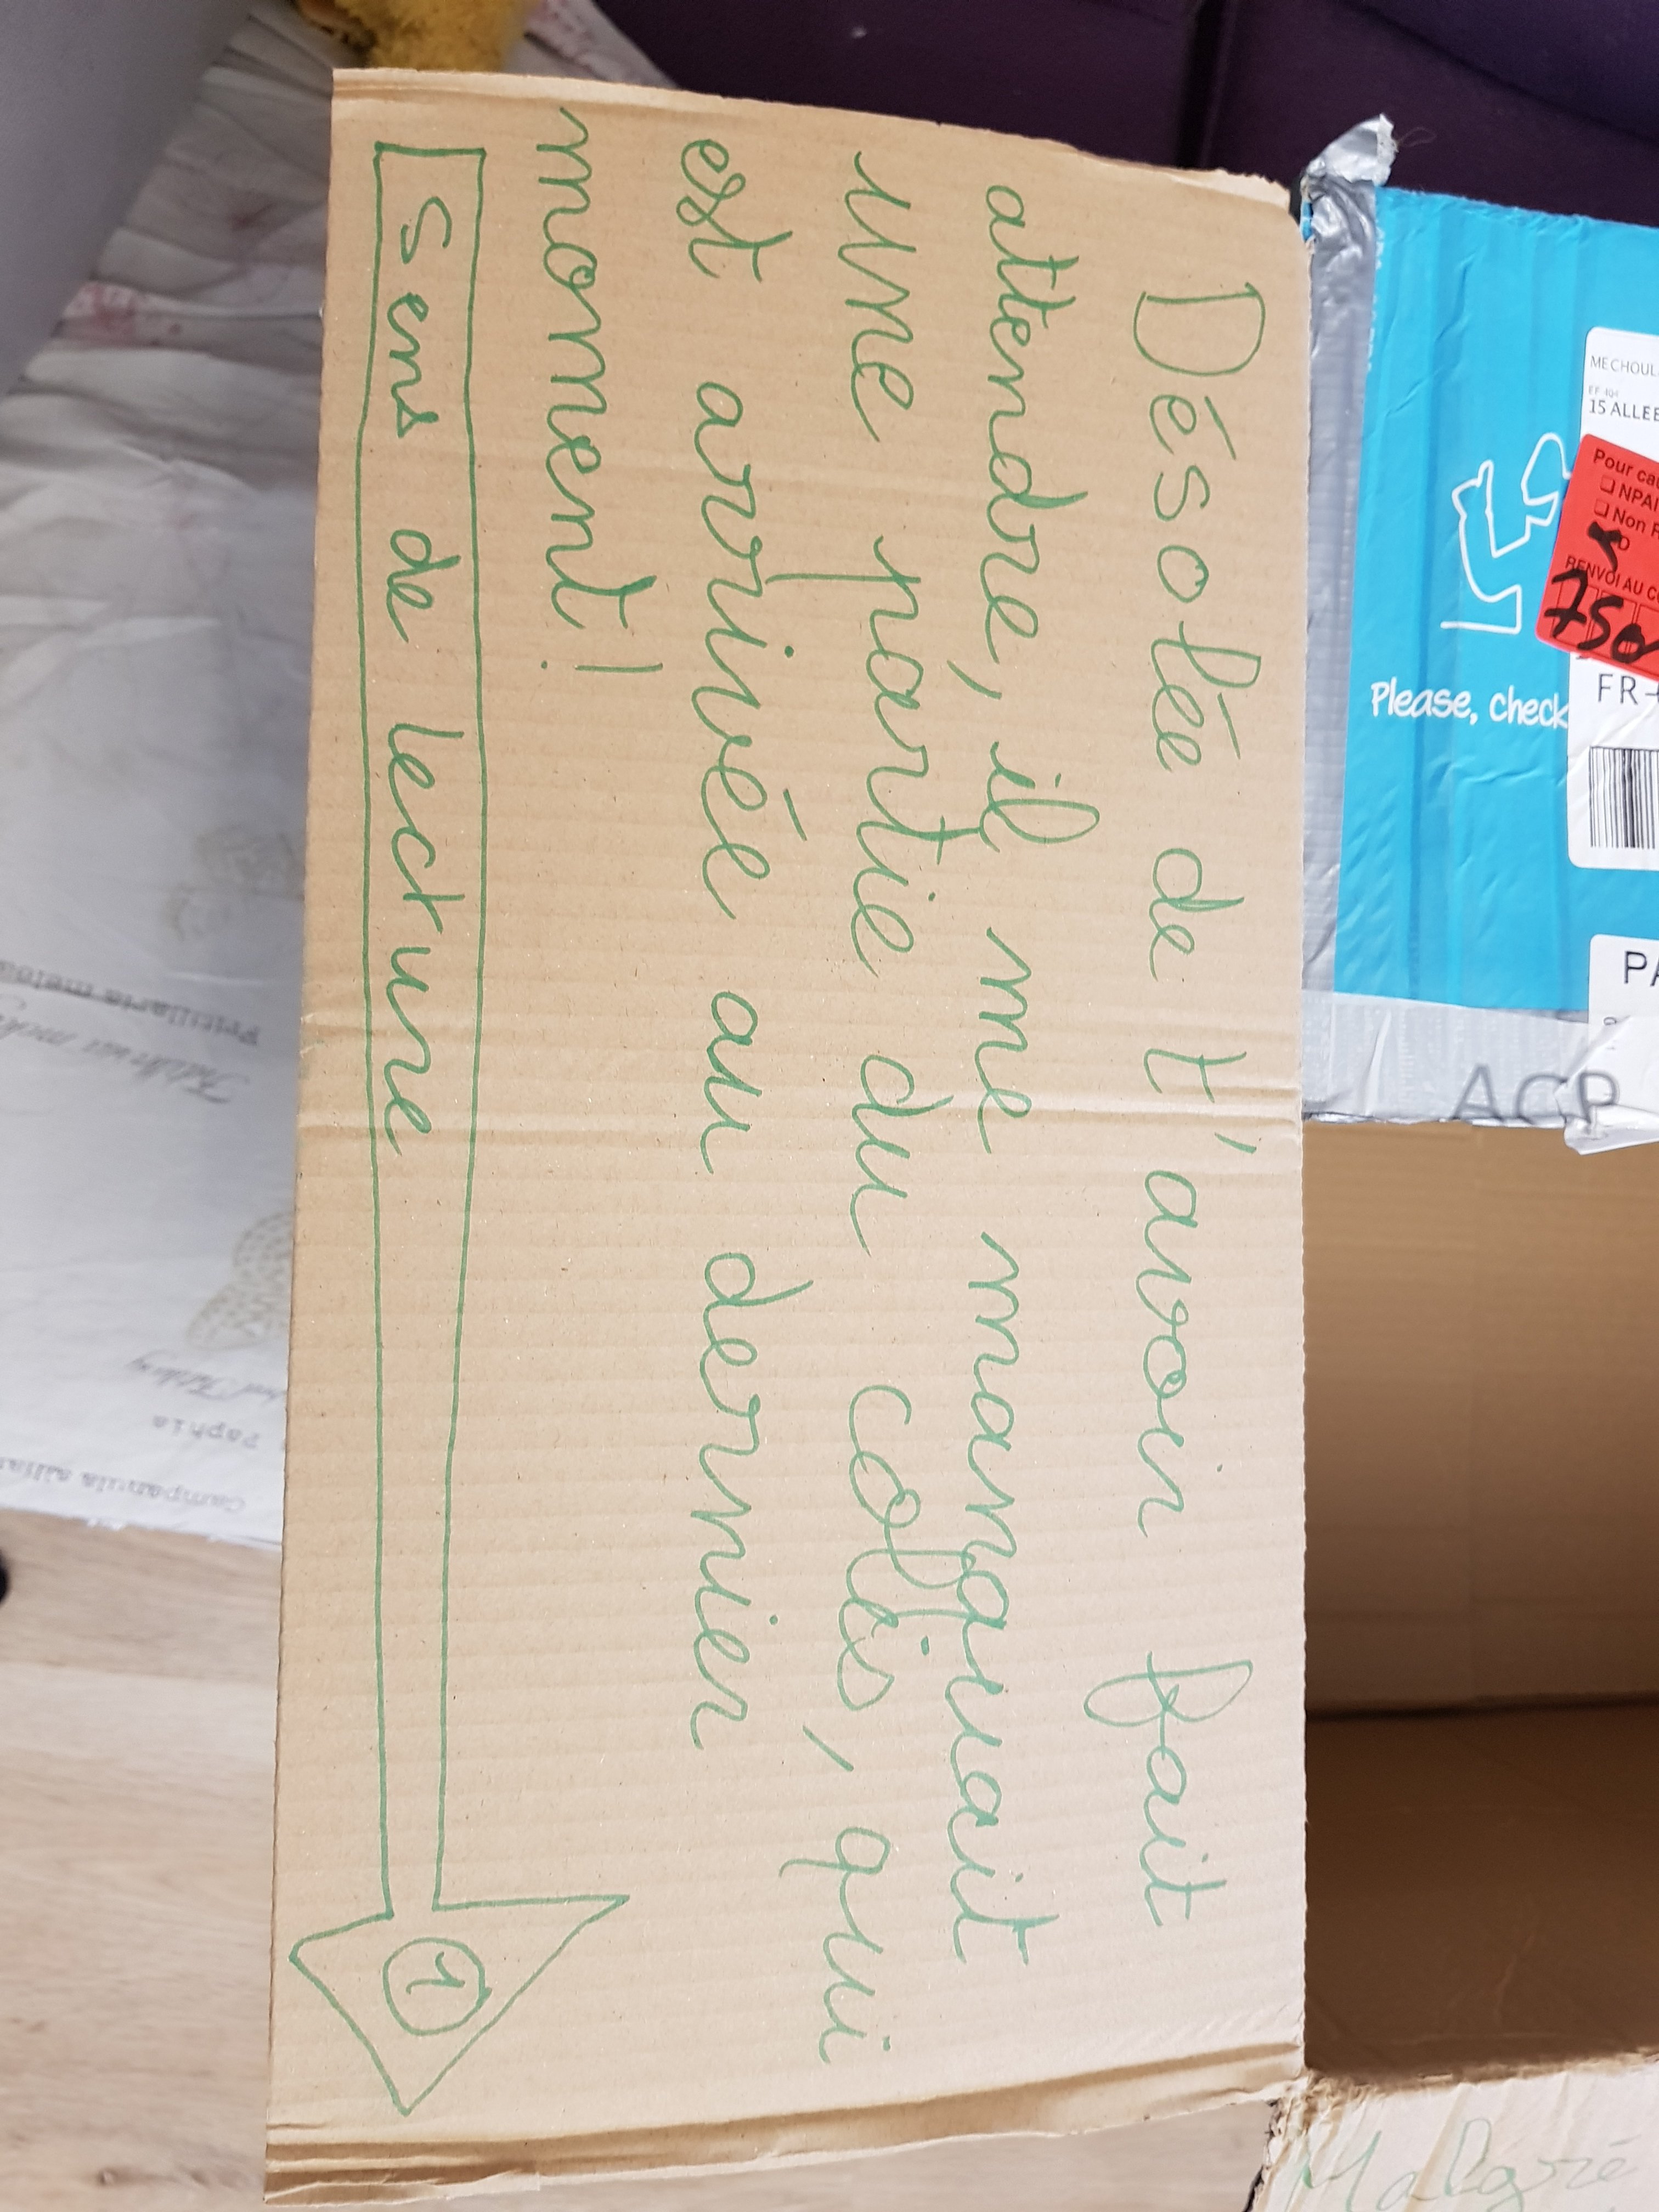 Désolée de t'avoir fait
attendre, il me manquait
une partie du colis, qui
est arrivée au dernier
moment!
Sens de lecture
1
Malgré
Please, check
15 ALLEE
Pour
NPAI
Non
RENVOI AU
750
FR-
ACP
Campanula